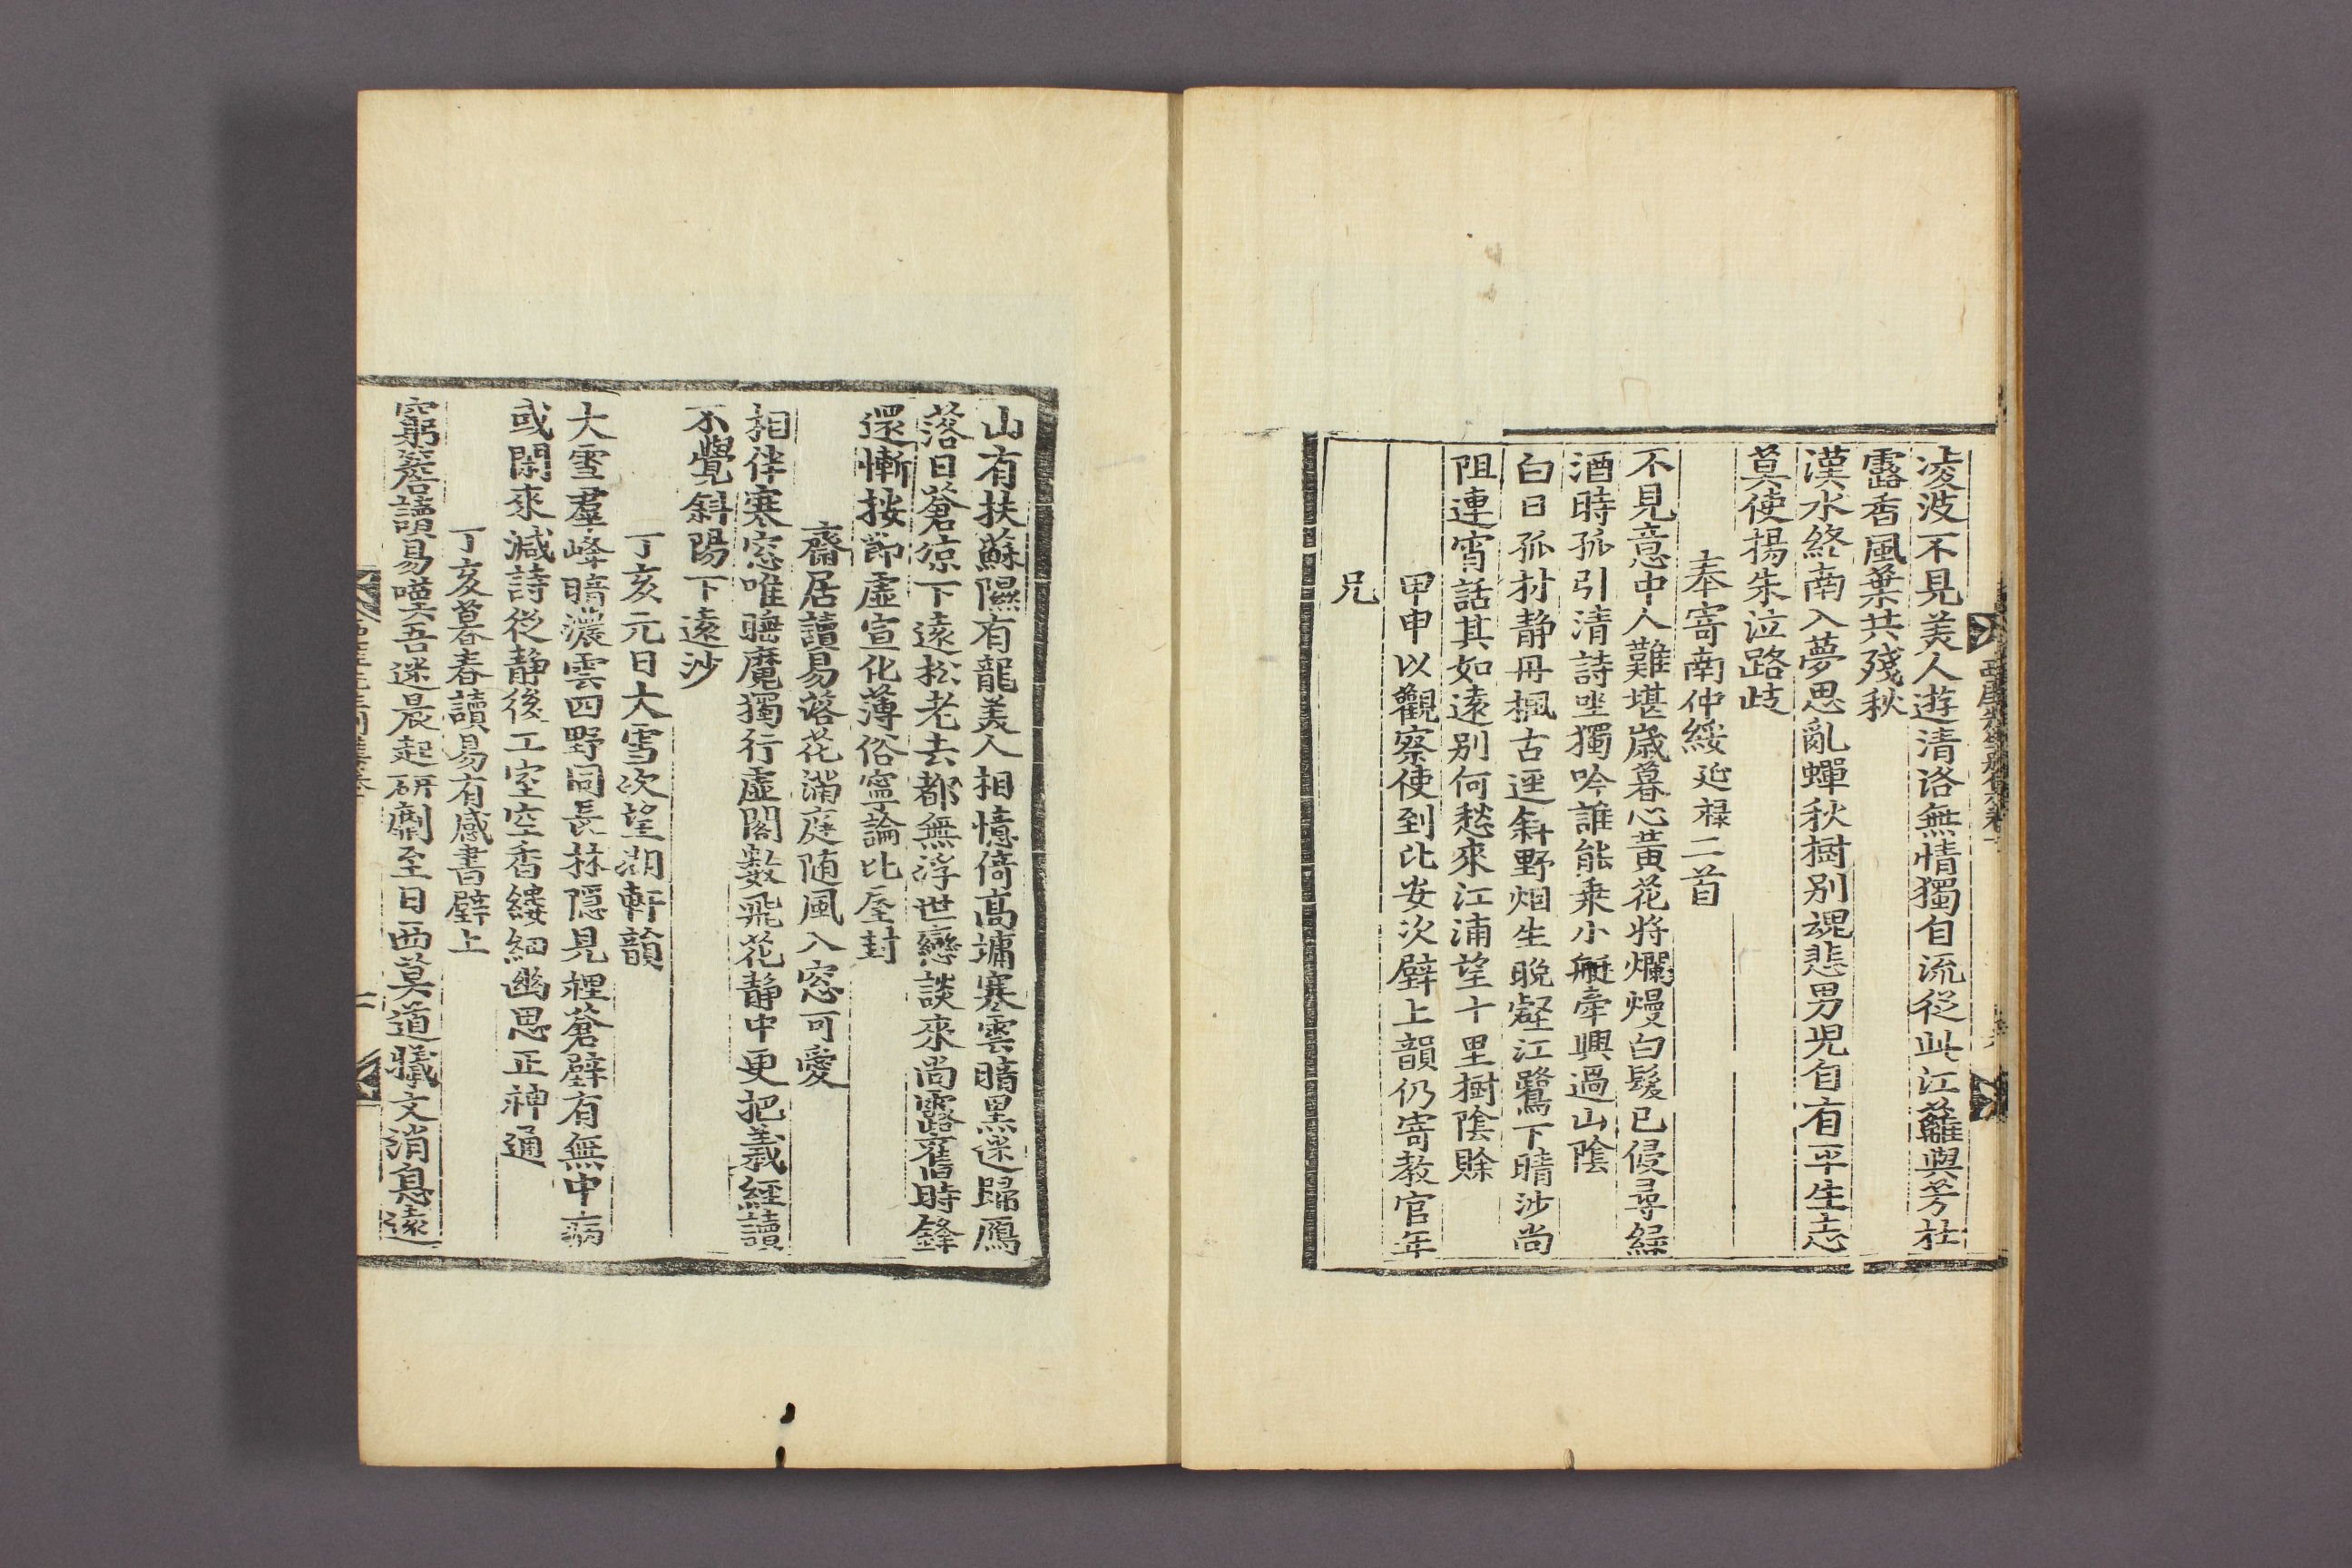 凌波不見美人遊清洛無情獨自流從此江蘺與芳杜
露香風葉共殘秋
漢水終南入夢思亂蟬秋樹別魂悲男兒自有平生志
莫使揚朱泣路歧
奉寄南仲綏延祿二首
不見意中人難堪歲暮心黃花將爛熳白髮已侵尋綠
酒時孤引清詩坐獨吟誰能乘小艇牽興過山陰
白日孤村靜丹楓古逕斜野烟生晚壑江鷺下晴沙尚
阻連宵話其如遠別何愁來江浦望十里樹陰賒
甲申以觀察使到比安次壁上韻仍寄教官年
兄
山有扶蘇隰有龍美人相憶倚高墉寒雲暗黑迷歸鴈
落日蒼凉下遠松老去都無浮世戀談來尚露舊時鋒
還慚按節虛宣化薄俗寧論比屋封
齋居讀易落花滿庭随風入窓可愛
相伴寒窓唯睡魔獨行虛閣數飛花靜中更把羲經讀
不覺斜陽下遠沙
丁亥元日大雪次望湖軒韻
大雪羣峰暗濃雲四野同長林隱見裡蒼壁有無中病
或閑來減詩從靜後工室空香縷細幽思正神通
丁亥暮春讀易有感書壁上
窮簷讀易嘆吾迷晨起研劘至日西莫道犧文消息遠